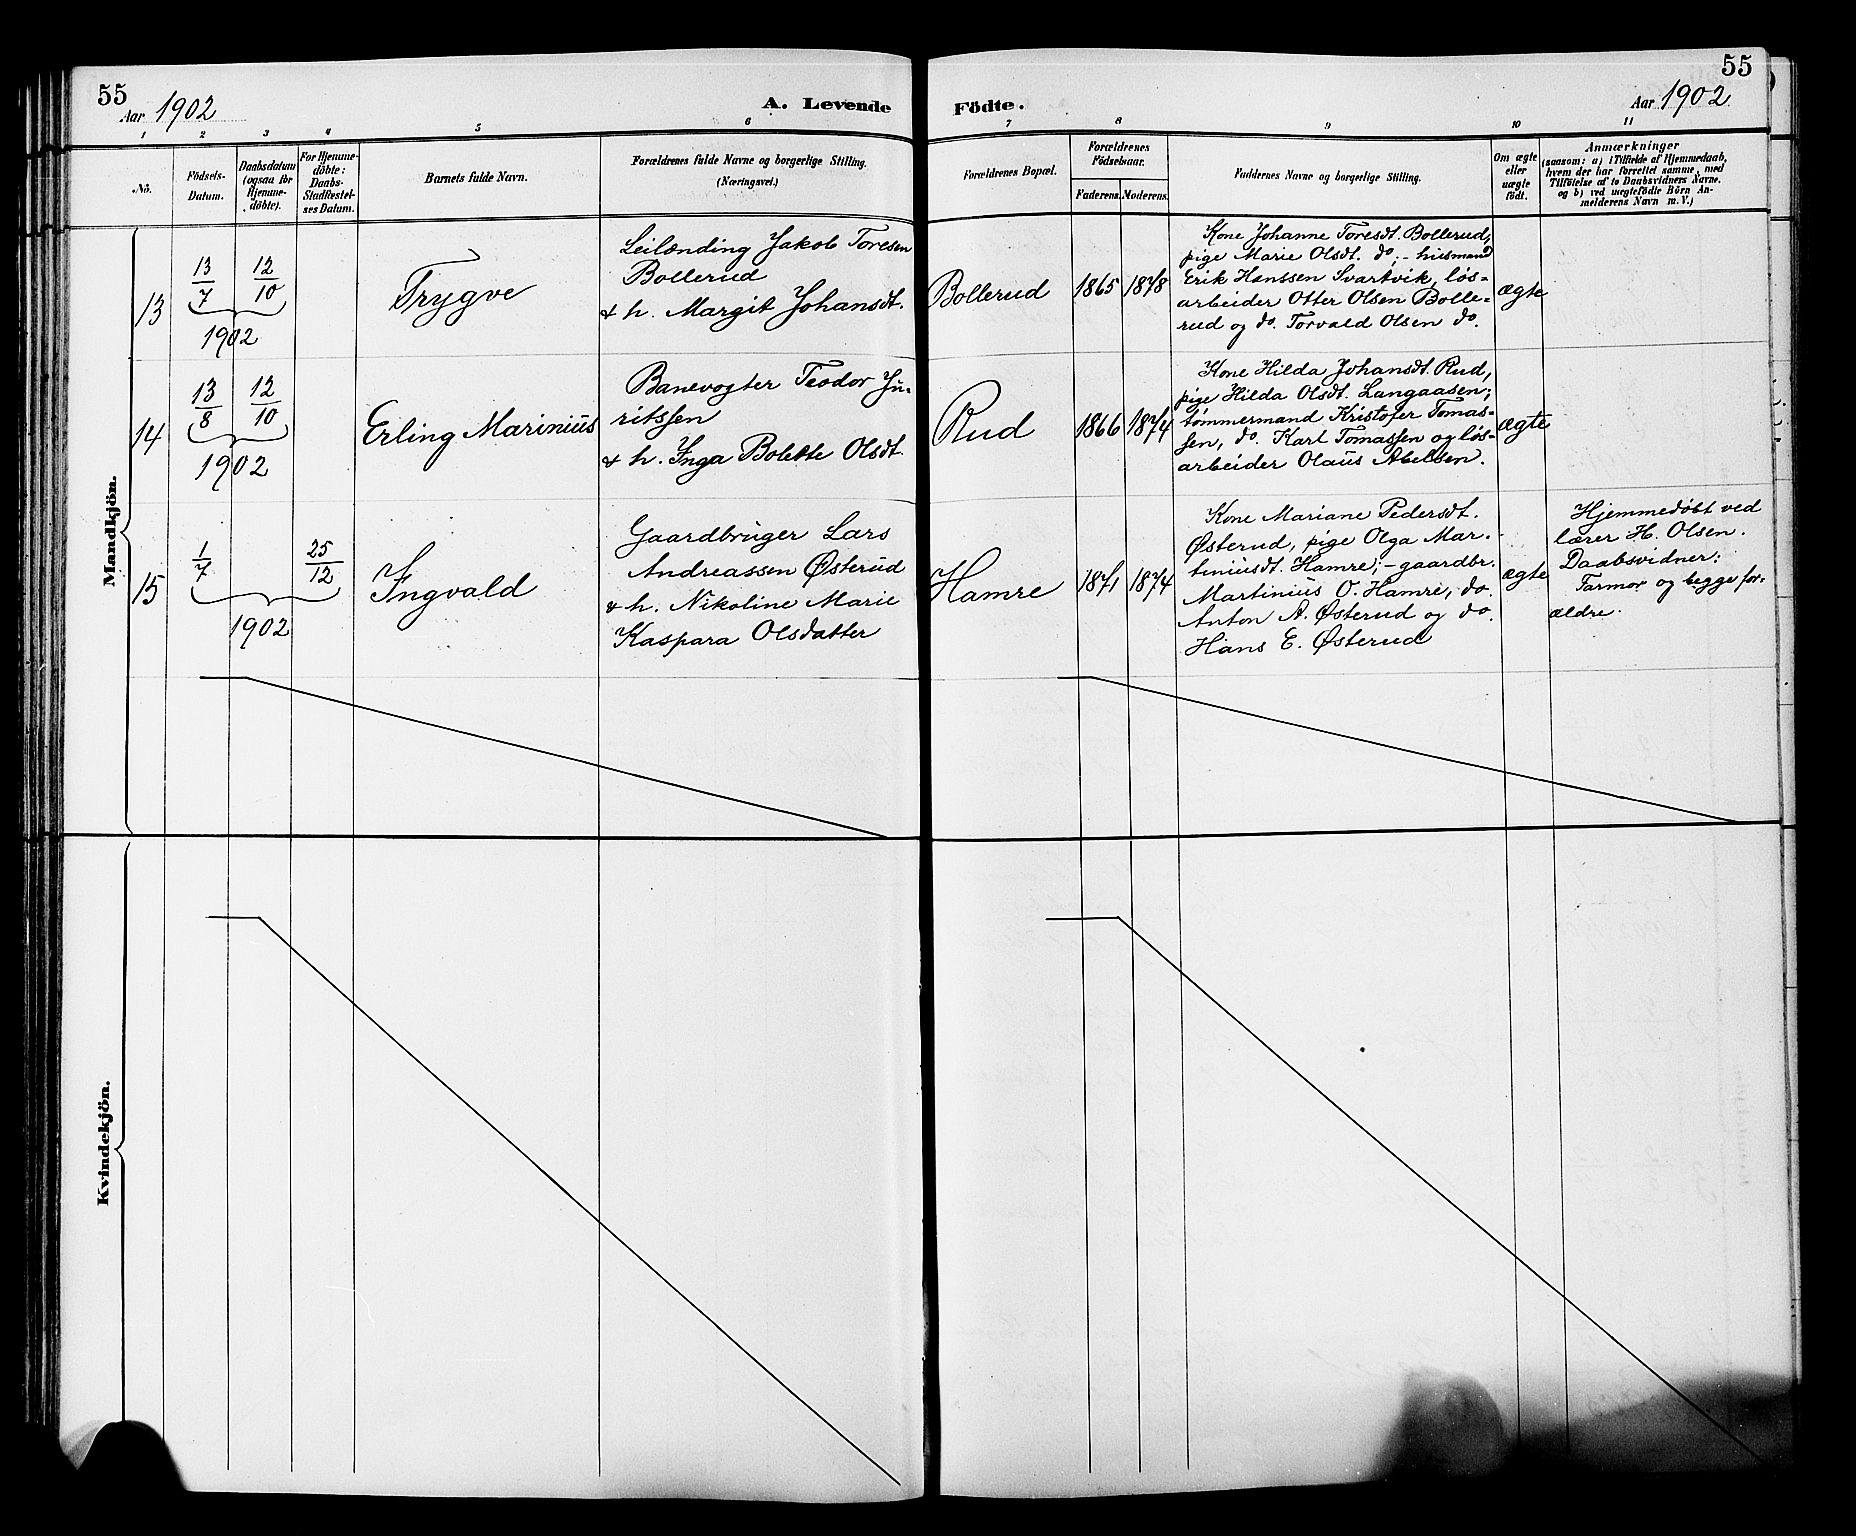 55
Aar 1902
A. Levende
Födte.
55
Aar 1902
1 2 3 4 5 6 7 8 9 10 11
No.
Födsels-
Datum.
Daabsdatum
(ogsaa for
Hjemme-
döbte).
For Hjemme-
döbte:
Daabs-
Stadfæstel-
ses Datum.
Barnets fulde Navn.
Forældrenes fulde Navne og borgerlige Stilling.
(Næringsvei.)
Forældrenes Bopæl.
Forældrenes
Födselsaar.
Faderens.
Moderens.
Faddernes Navne og borgerlige Stilling.
Om ægte
eller
uægte
födt.
Anmærkninger
(saasom: a) i Tilfælde af Hjemmedaab,
hvem der har forrettet samme, med
Tilföielse af to Daabsvidners Navne,
og b) ved uægtefödte Börn An-
melderens Navn m. V.)
Mandkjön.
13
13/7 12/10
1902
Trygve
Leilænding Jakob Toresen
Bollerud
& h. Margit Johansdt.
Bollerud
1865
1878
Kone Johanne Toresdt. Bollerud,
pige Marie Olsdt. do; - husmand
Erik Hanssen Svartvik, løs-
arbeider Otter Olsen Bolle-
rud og do. Torvald Olsen do.
ægte
14
13/8 12/10
1902
Erling Marinius
Banevogter Teodor Ju-
ritssen
& h. Inga Bolette Olsdt.
Rud
1866
1874
Kone Hilda Johansdt. Rud,
pige Hilda Olsdt. Langaasen;
tømmermand Kristofer Tomas-
sen, do. Karl Tomassen og løs-
arbeider Olaus Abelsen.
ægte
15
1/7 25/12
1902
Ingvald
Gaardbruger Lars
Andreassen Østerud
& h. Nikoline Marie
Kaspara Olsdatter
Hamre
1871
1874
Kone Mariane Pedersdt.
Østerud, pige Olga Mar-
tiniusdt. Hamre; - gaardbr.
Martinius O. Hamre, do.
Anton A. Østerud og do.
Hans E. Østerud
ægte
Hjemmedøbt ved
lærer H. Olsen.
Daabsvidner:
Farmor og begge for-
ældre.
Kvindekjön.